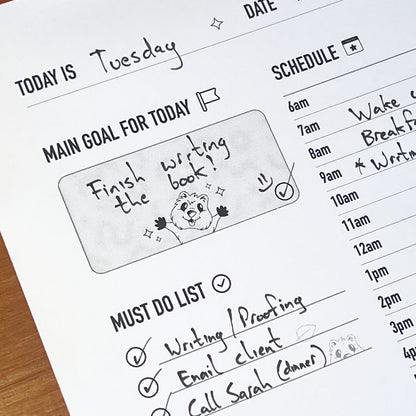 TODAY IS Tuesday
DATE
MAIN GOAL FOR TODAY
Finish writing
the book!
MUST DO LIST
Writing/Proofing
Email client
Call Sarah (dinner)
SCHEDULE
6am
7am Wake
8am
9am * 
10am
11am
12am
1pm
2pm
3pm